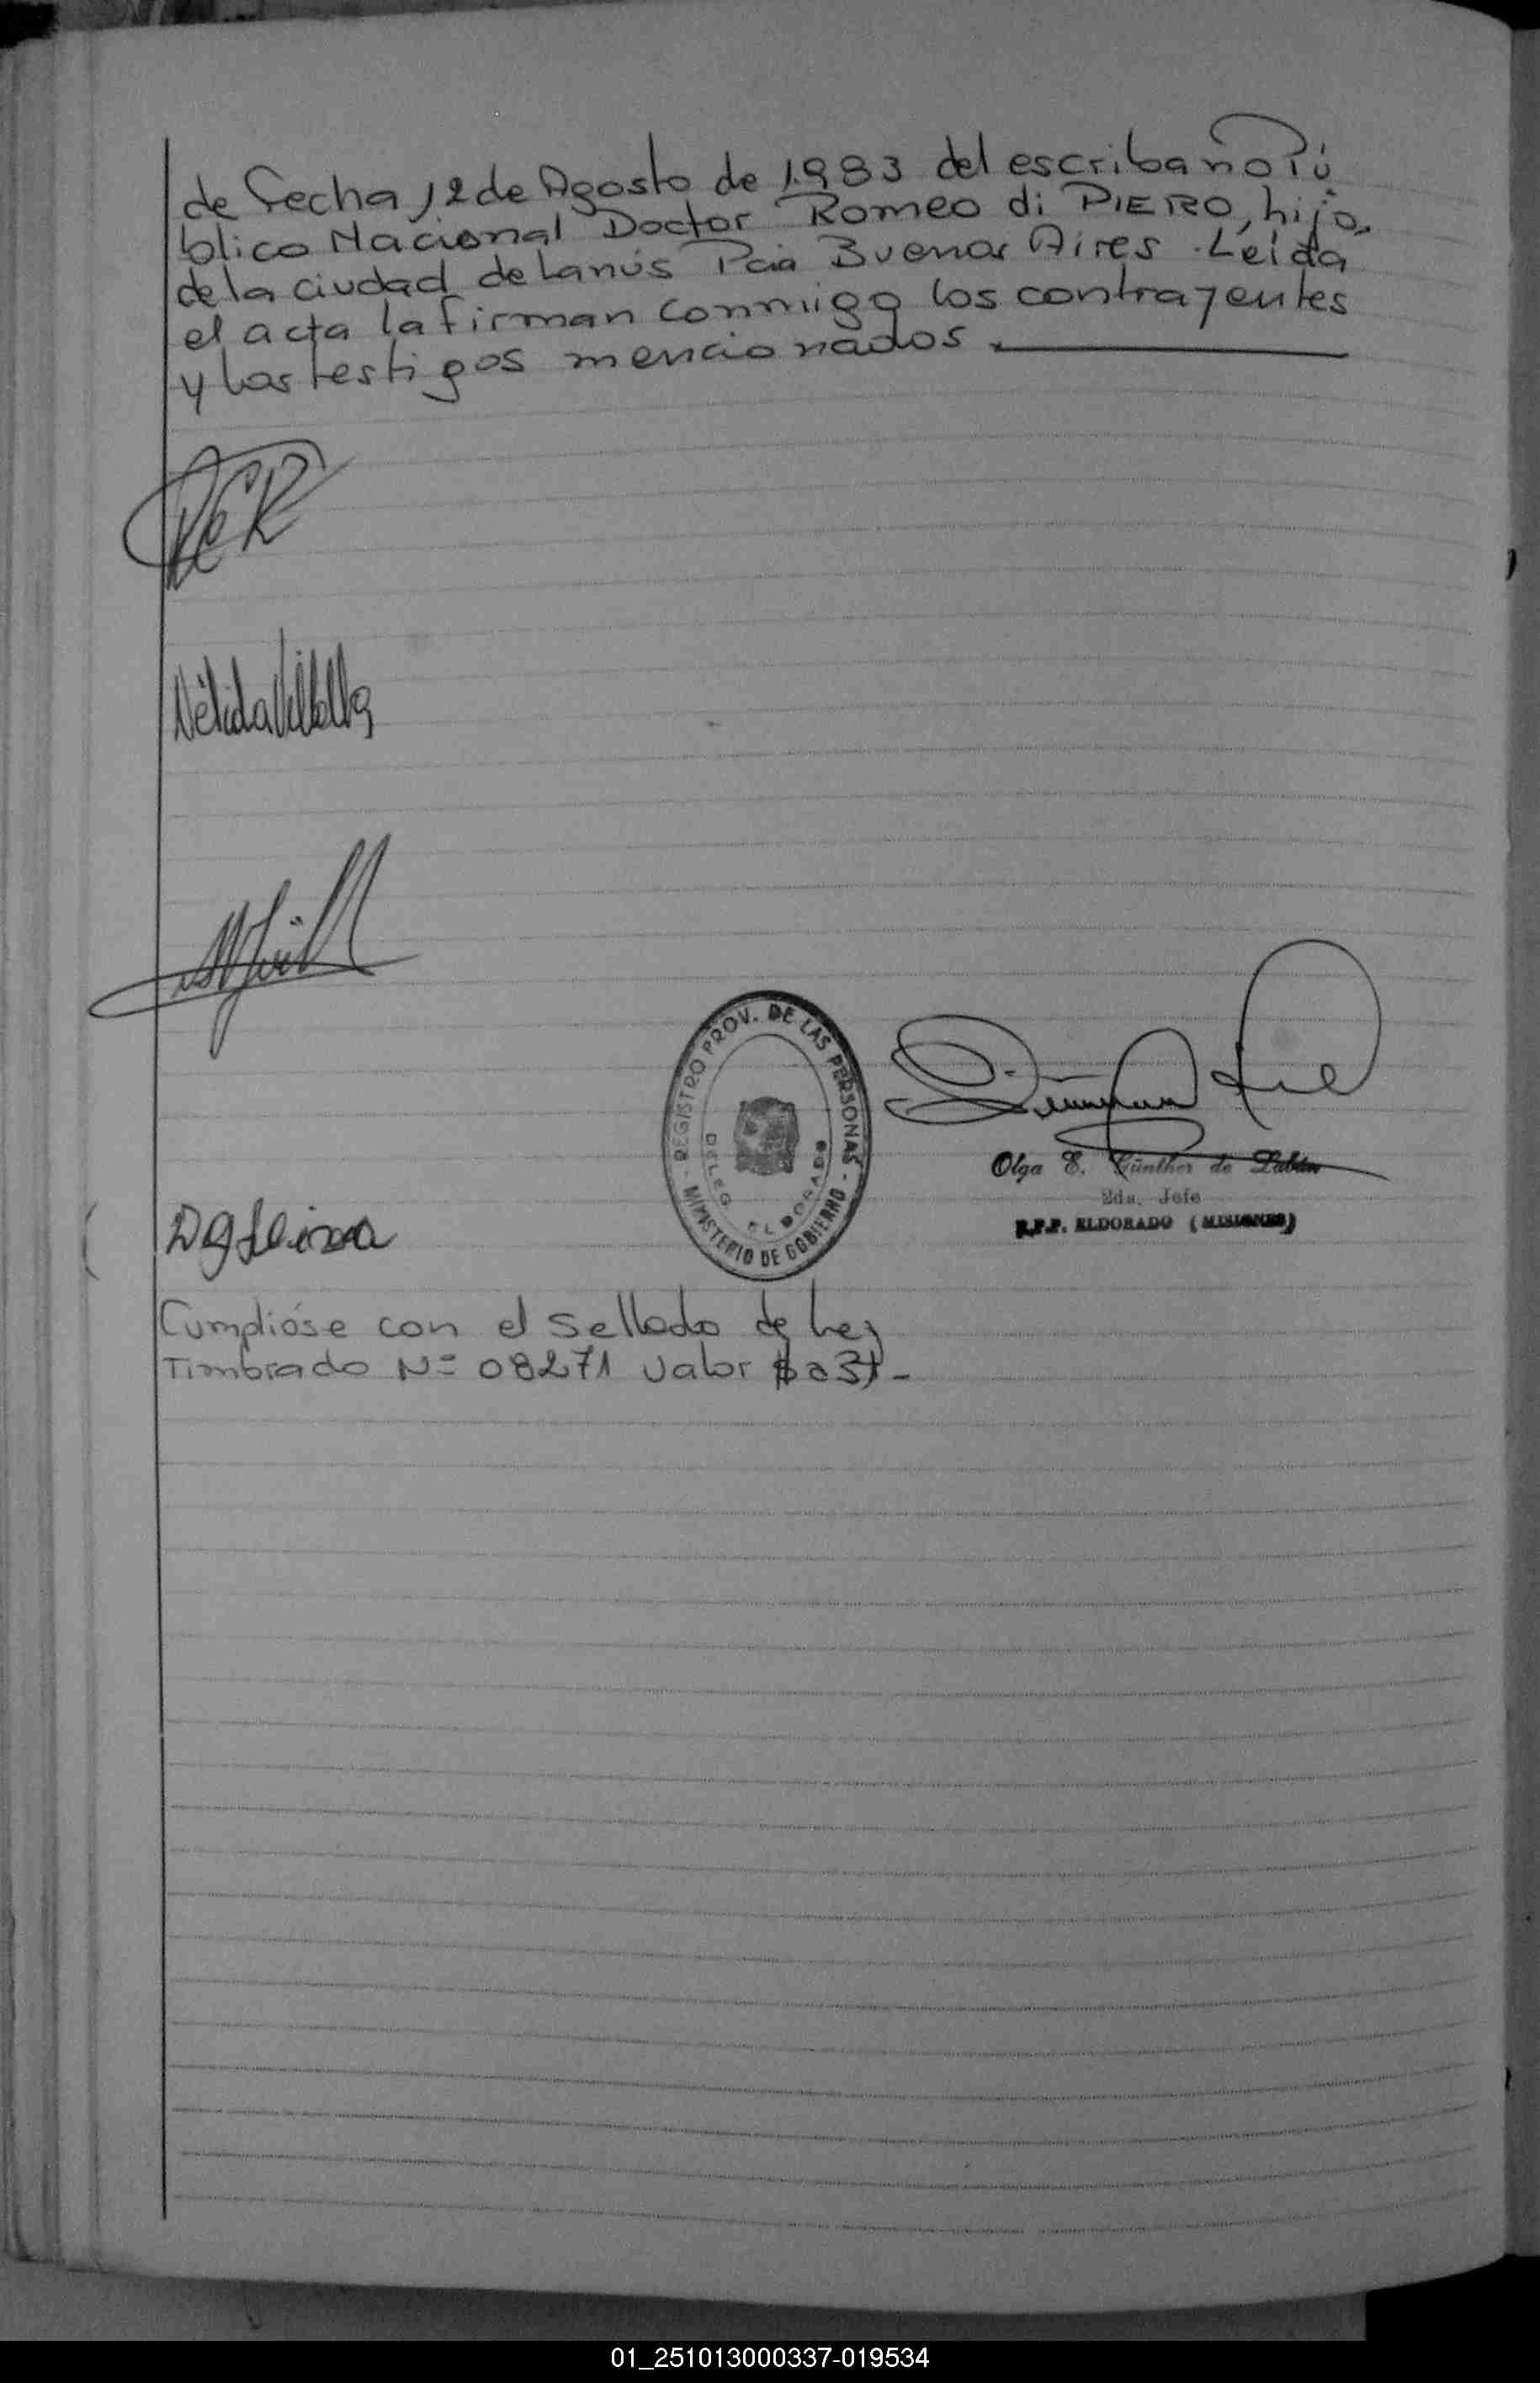 de fecha 12 de Agosto de 1983 del escribano Pú
blico Nacional Doctor Romeo di PIERO, hijo,
de la ciudad de Lanús Pcia Buenos Aires. Leída
el acta la firman conmigo los contrayentes
y los testigos mencionados.
Nélida Villalba
REGISTRO PROV. DE LAS PERSONAS
DELEG. ELDORADO
- MINISTERIO DE GOBIERNO -
Olga E. Günther de
2da. Jefe
R.P.P. ELDORADO (MISIONES)
Cumplióse con el sellado de Ley
Timbrado Nº 08271 valor
01_251013000337-019534